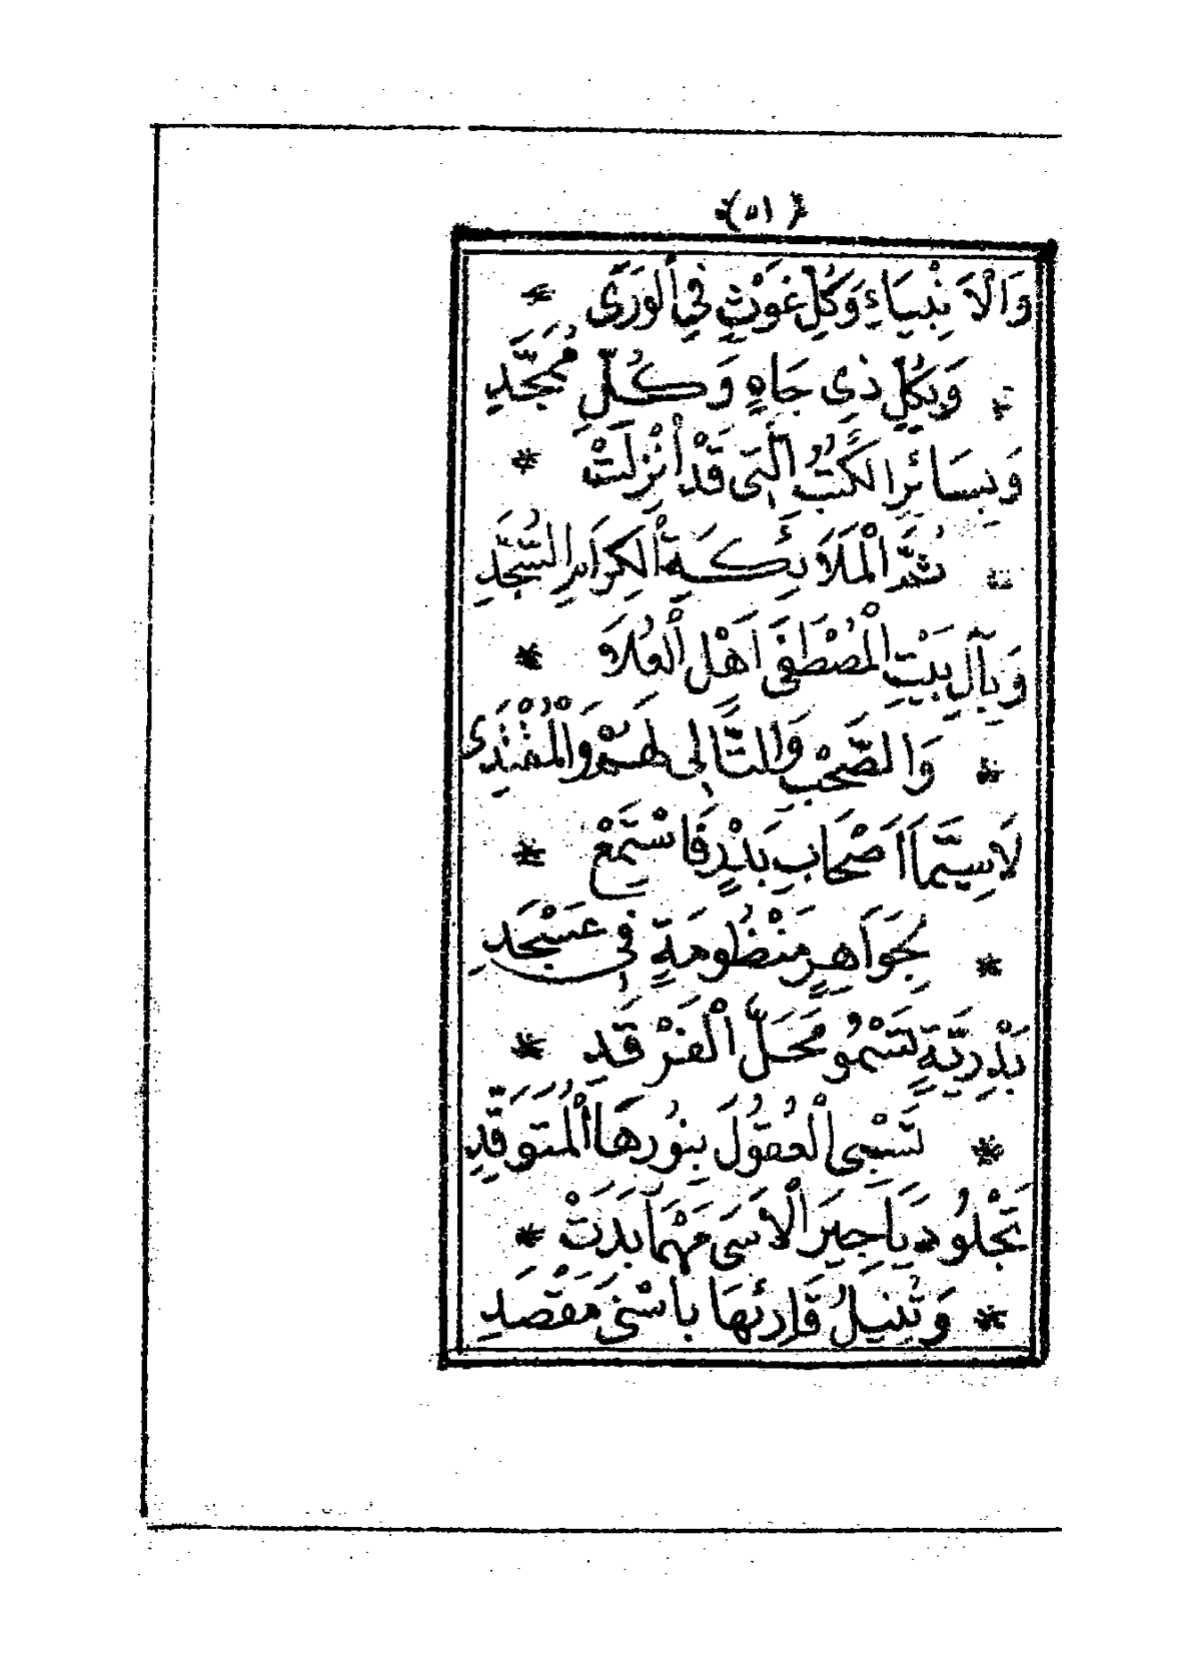 ﴿٥١﴾
وَالْاَنْبِيَاءِ وَكُلِّ غَوْثٍ فِي الْوَرَى *
* وَبِكُلِّ ذِي جَاهٍ وَكُلِّ مُمَجَّدِ
وَبِسَائِرِ الْكُتُبِ الَّتِي قَدْ أُنْزِلَتْ *
* ثُمَّ الْمَلَائِكَةِ الْكِرَامِ السُّجَّدِ
وَبِآلِ بَيْتِ الْمُصْطَفَى اَهْلِ الْعُلَا *
* وَالصَّحْبِ وَالتَّالِي لَهُمْ وَالْمُقْتَدِى
لَاسِيَّمَا اَصْحَابِ بَدْرٍ فَاسْتَمِعْ *
* بِجَوَاهِرٍ مَنْظُومَةٍ فِي عَسْجَدِ
بَدْرِيَّةٍ تَسْمُو مَحَلَّ الْفَرْقَدِ *
* تَسْبِى الْعُقُولَ بِنُورِهَا الْمُتَوَقِّدِ
تَجْلُو دَيَاجِيرَ الْاَسَى مَهْمَا بَدَتْ *
* وَتُنِيلُ قَارِئَهَا بِاَسْنَى مَقْصَدِ